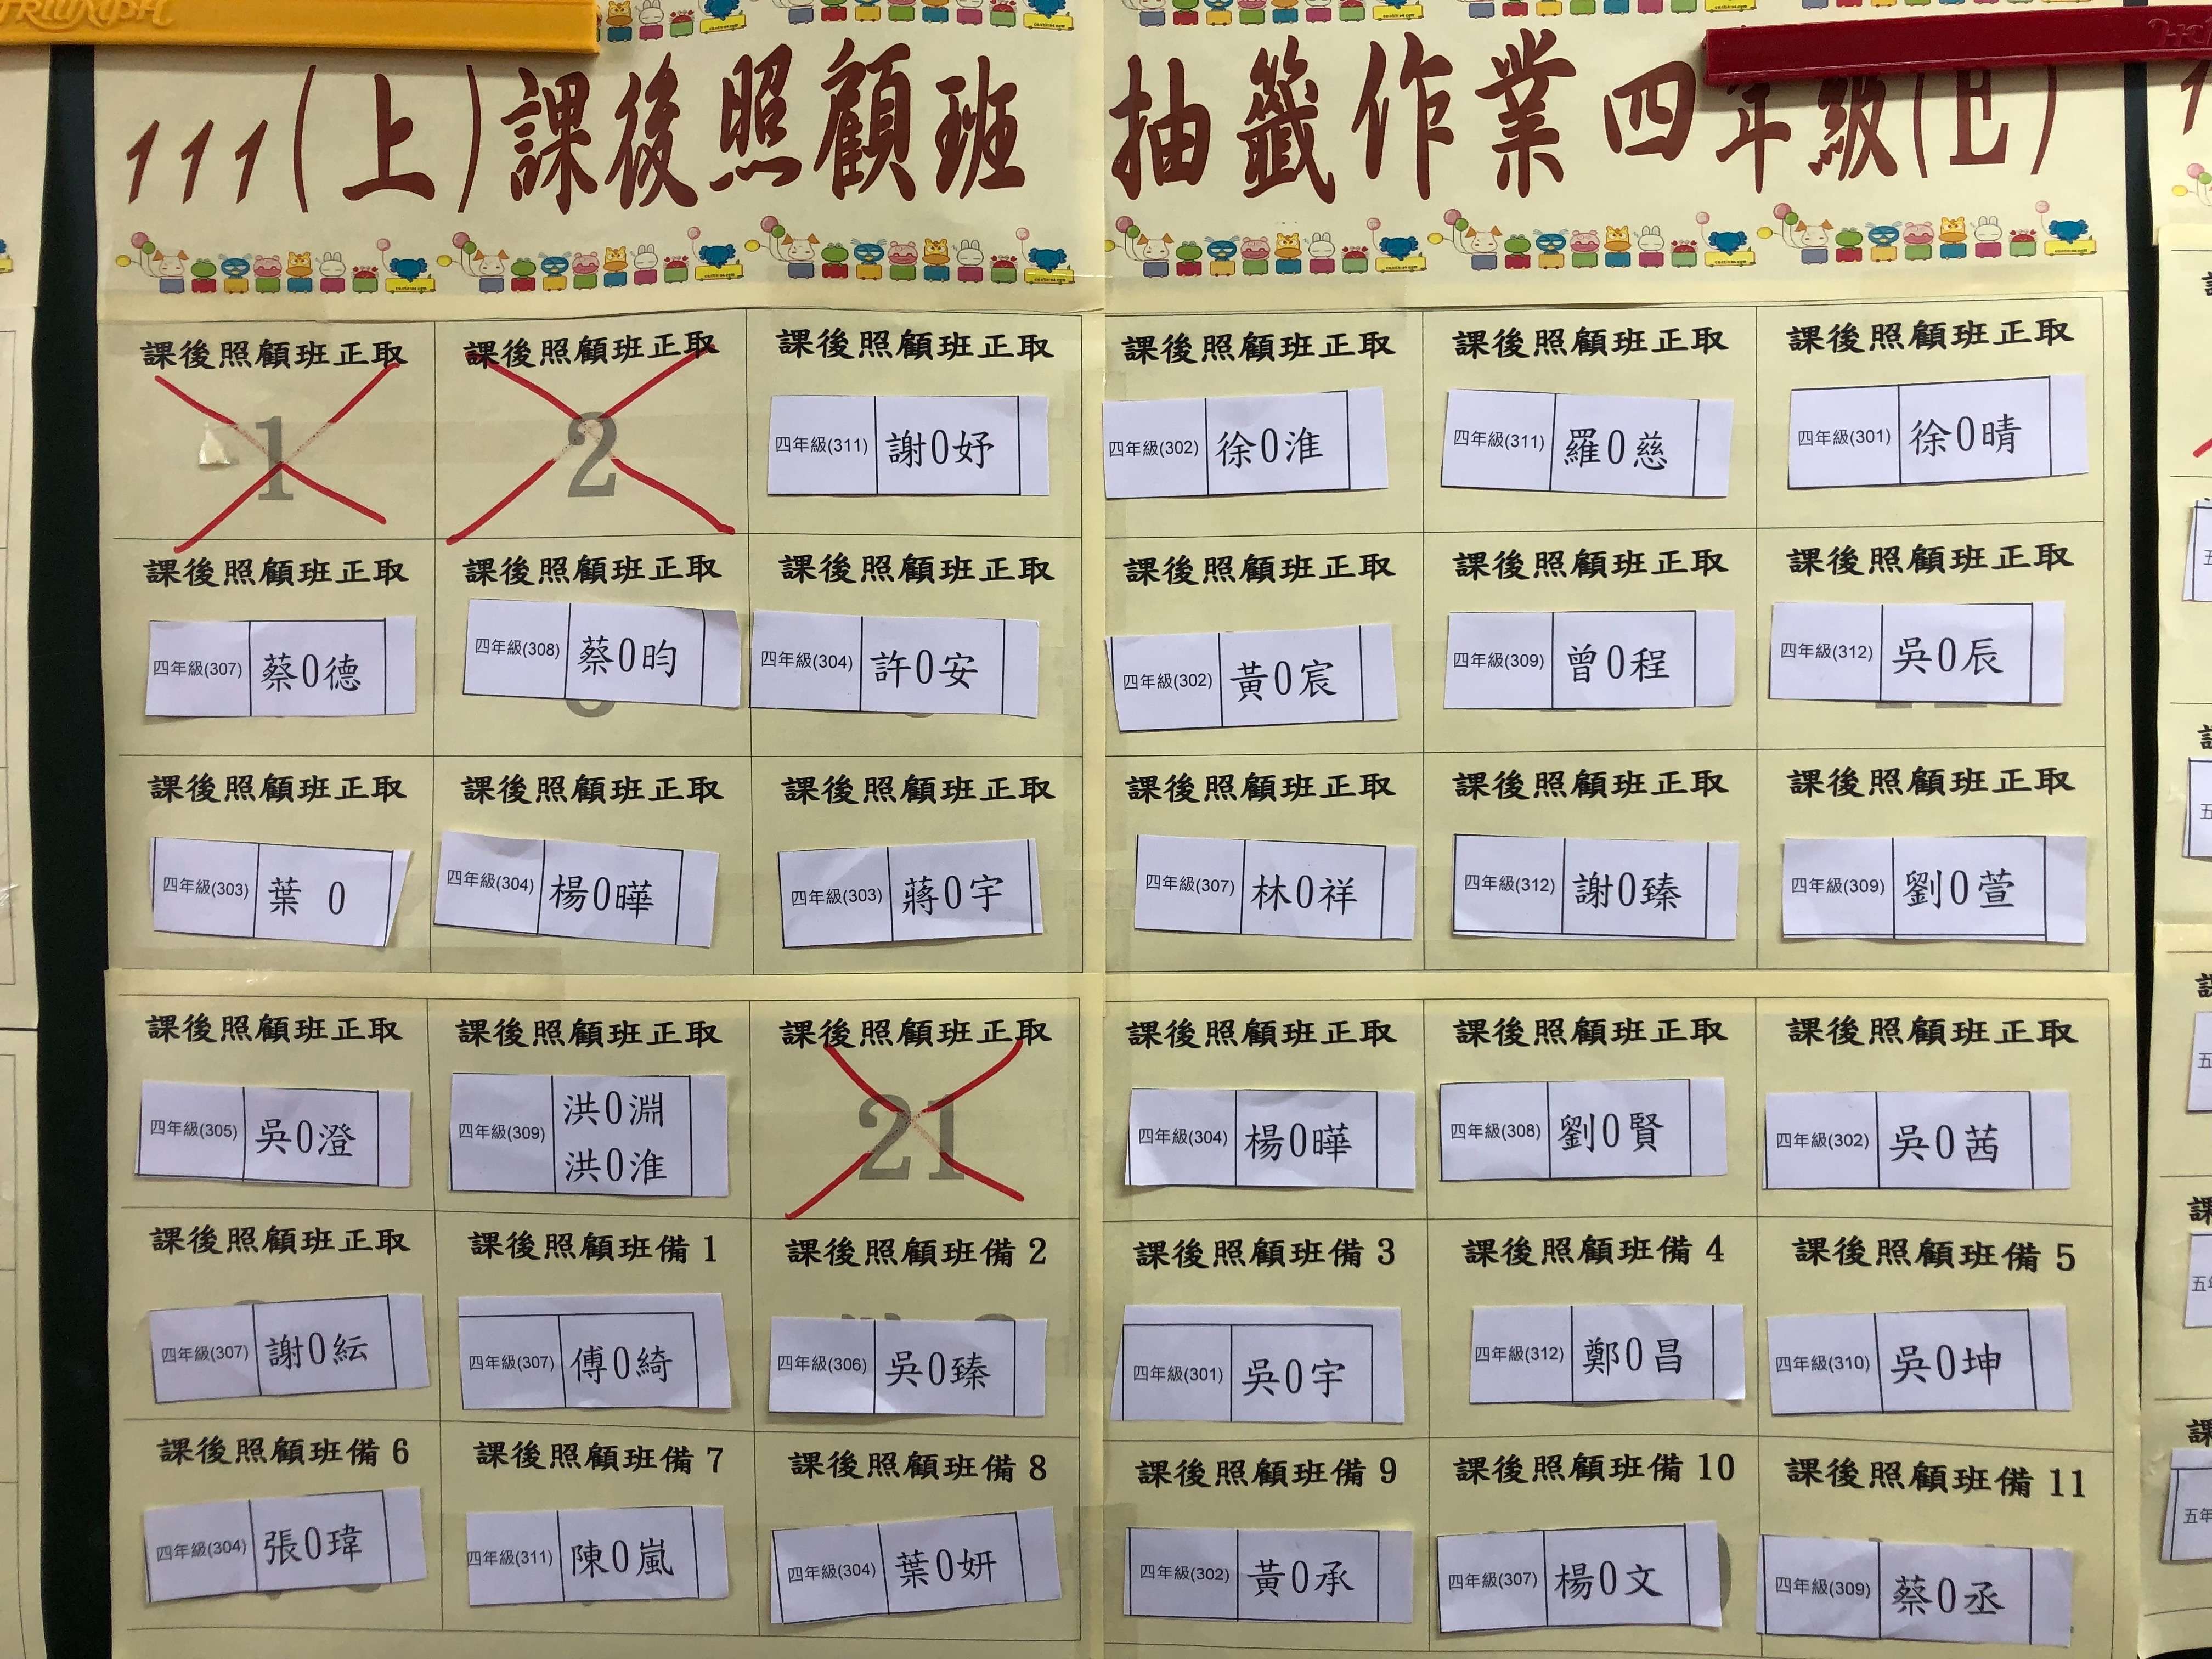 TRIUMPH
111(上)課後照顧班 抽籤作業四年級(E)
課後照顧班正取 課後照顧班正取 課後照顧班正取 課後照顧班正取 課後照顧班正取 課後照顧班正取
1 2 四年級(311) 謝0妤 四年級(302) 徐0淮 四年級(311) 羅0慈 四年級(301) 徐0晴
課後照顧班正取 課後照顧班正取 課後照顧班正取 課後照顧班正取 課後照顧班正取 課後照顧班正取
四年級(307) 蔡0德 四年級(308) 蔡0昀 四年級(304) 許0安 四年級(302) 黃0宸 四年級(309) 曾0程 四年級(312) 吳0辰
課後照顧班正取 課後照顧班正取 課後照顧班正取 課後照顧班正取 課後照顧班正取 課後照顧班正取
四年級(303) 葉 0 四年級(304) 楊0曄 四年級(303) 蔣0宇 四年級(307) 林0祥 四年級(312) 謝0臻 四年級(309) 劉0萱
課後照顧班正取 課後照顧班正取 課後照顧班正取 課後照顧班正取 課後照顧班正取 課後照顧班正取
四年級(305) 吳0澄 四年級(309) 洪0淵 洪0淮 21 四年級(304) 楊0曄 四年級(308) 劉0賢 四年級(302) 吳0茜
課後照顧班正取 課後照顧班備1 課後照顧班備2 課後照顧班備3 課後照顧班備4 課後照顧班備5
四年級(307) 謝0紜 四年級(307) 傅0綺 四年級(306) 吳0臻 四年級(301) 吳0宇 四年級(312) 鄭0昌 四年級(310) 吳0坤
課後照顧班備6 課後照顧班備7 課後照顧班備8 課後照顧班備9 課後照顧班備10 課後照顧班備11
四年級(304) 張0瑋 四年級(311) 陳0嵐 四年級(304) 葉0妍 四年級(302) 黃0承 四年級(307) 楊0文 四年級(309) 蔡0丞